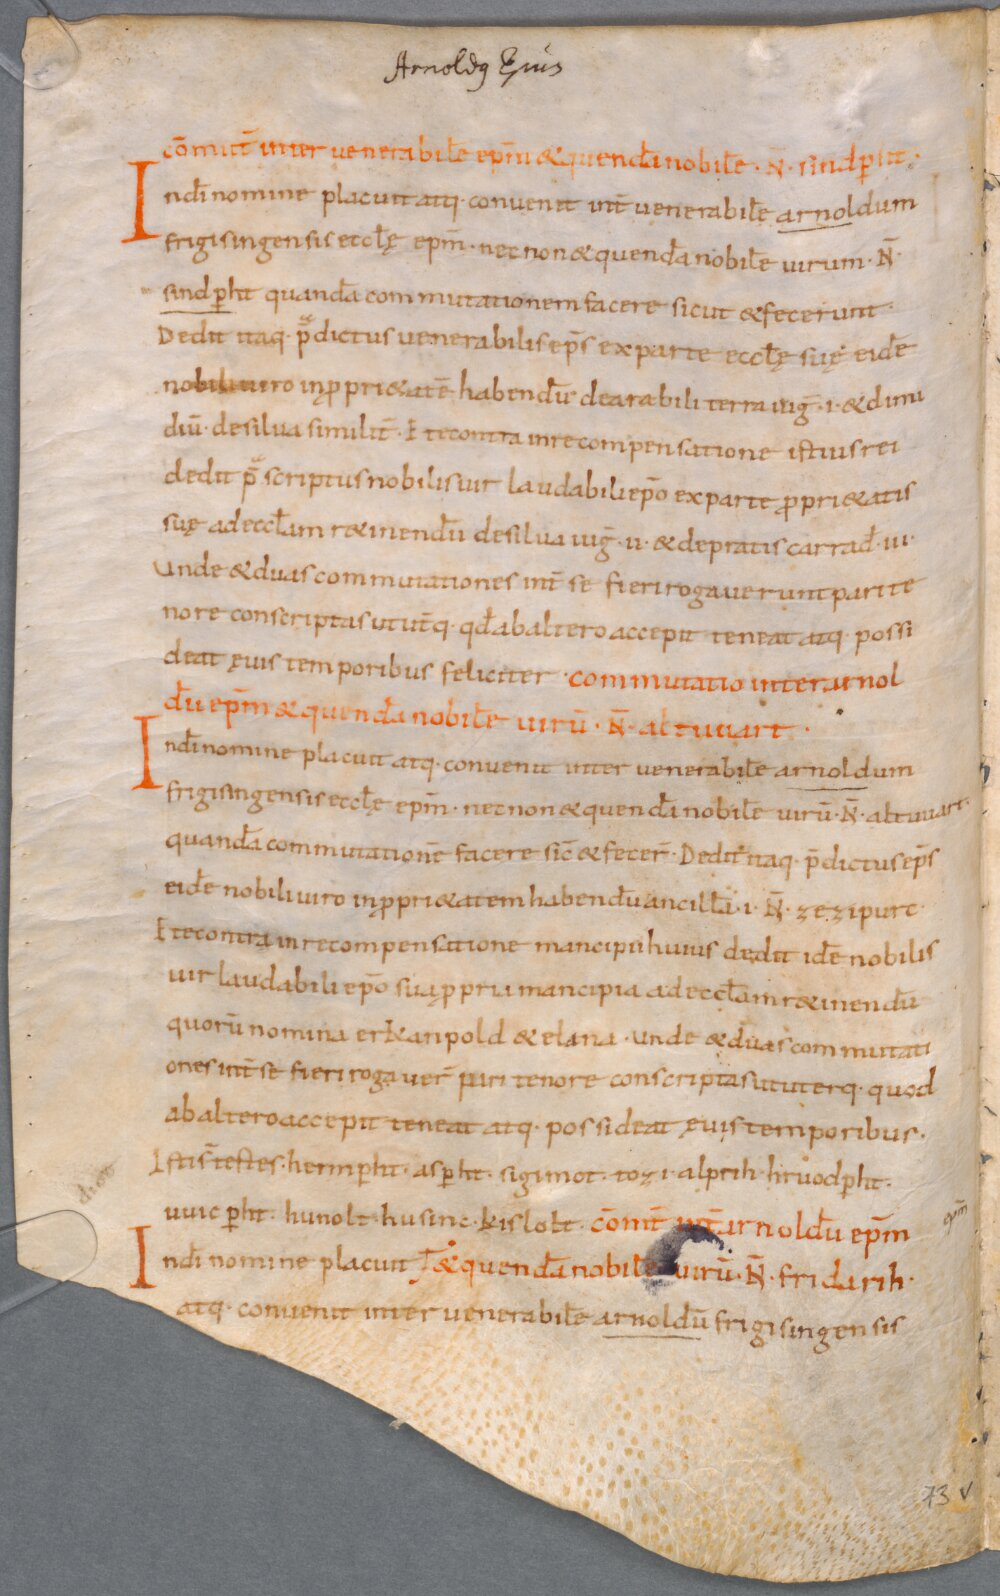 Arnoldꝯ Epus
com̄ut̄ inter venerabilē epm̄ &quendā nobilē · N̄ · sindꝑht ·
Indī nomine placuit atq· convenit int̄ venerabilē arnoldum
frigisingensis ecclę̄ epm̄ · necnon &quendā nobilē uirum · N̄ ·
sindꝑht quandā commutationem facere sicut &fecerunt ·
Dedit itaq· p̄dictus venerabilis ep̄s ex parte ecclę̄ suę eidē
nobili uiro in ꝓpri&atē habendū de arabili terra iuḡ · i · &dimi
diū · de silua similit̄ · Et econtra in recompensatione istius rei
dedit p̄scriptus nobilis uir laudabili ep̄o ex parte ꝓpri&atis
suę ad ecclām r&inendū de silua iuḡ · ii · &de pratis carrad̄ · iii ·
Unde &duas commutationes int̄ se fieri rogauerunt pari te
nore conscriptas ut ut̄q· qd̄ ab altero accepit teneat atq· possi
deat ęuis temporibus feliciter · commutatio inter arnol
dū epm̄ &quendā nobilē uirū · N̄ · altuuart ·
Indī nomine placuit atq· convenit inter venerabilē arnoldum
frigisingensis ecclę̄ epm̄ · necnon &quendā nobilē uirū · N̄ · altuuart ·
quandā commutationē facere sic̄ &fecer̄ · Dedit itaq· p̄dictus ep̄s
eidē nobili uiro in ꝓpri&atem habendū ancillā · i · N̄ · zezipurc ·
Et econtra in recompensatione mancipii huius dedit idē nobilis
uir laudabili ep̄o sua ꝓpria mancipia ad ecclām r&inendū
quorū nomina erkanpold &elana · Unde &duas commutati
ones int̄ se fieri rogauer̄ pari tenore conscriptas ut uterq· quod
ab altero accepit teneat atq· possideat ęuis temporibus ·
Istis̄ testes · herimꝑht · asꝑht · sigimot · tozi · alprih · hruodꝑht ·
uuicꝑht · hunolt · husinc · kislolt · com̄t̄ int̄ arnoldū epm̄
Indī nomine placuit &quendā nobilē uirū · N̄ · fridarih ·
atq· convenit inter venerabilē arnoldū frigisingensis
epm̄
73 v